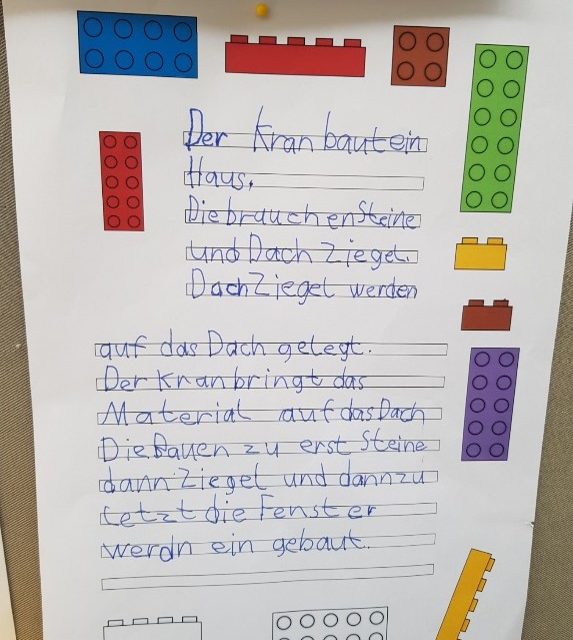 Der Kran baut ein
Haus.
Die brauchen Steine
und Dach Ziegel.
Dach Ziegel werden
auf das Dach gelegt.
Der Kran bringt das
Material auf das Dach
Die Bauen zu erst Steine
dann Ziegel und dann zu
letzt die Fenster
werdn ein gebaut.